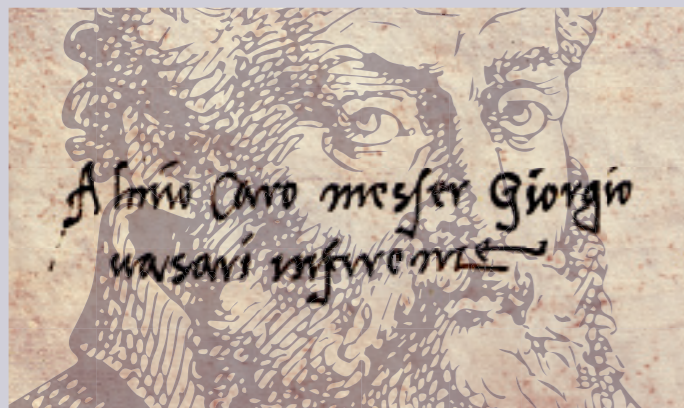 Al mio Caro messer Giorgio
vasari infire̅ze